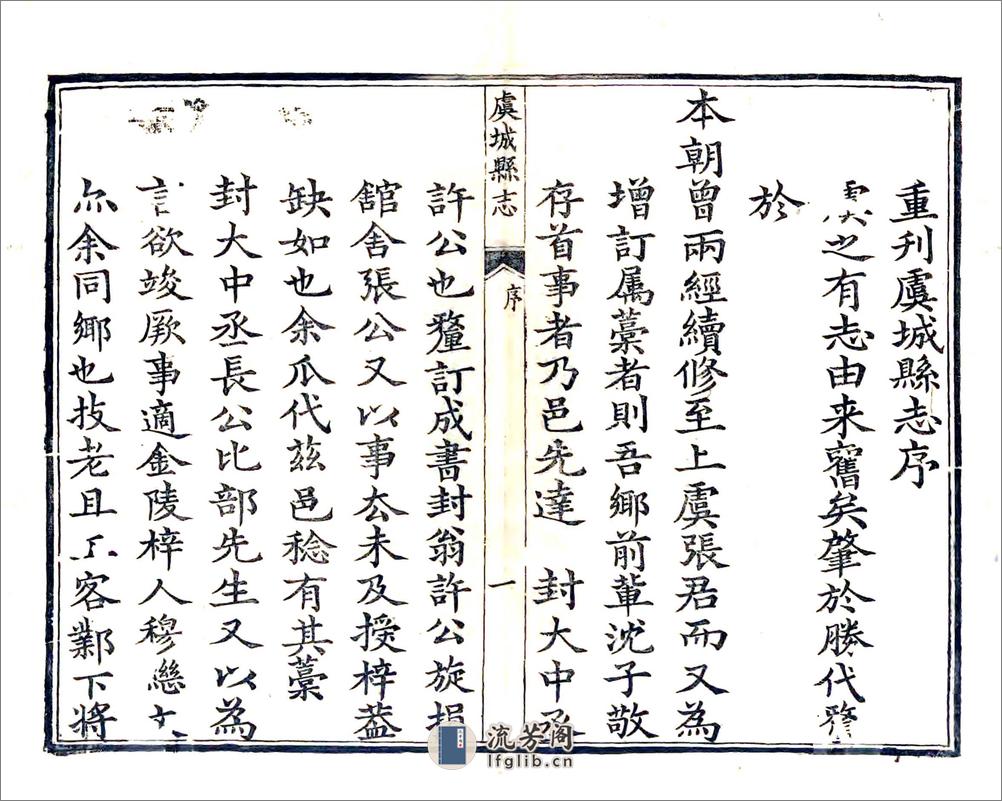 重刊虞城縣志序
虞之有志由来舊矣肇於勝代
於
本朝曾兩經續修至上虞張君而又為
增訂属藁者則吾鄉前軰沈子敬
存首事者乃邑先達 封大中丞
虞城縣志 序 一
許公也釐訂成書封翁許公旋捐
舘舍張公又以事厺未及授梓葢
缺如也余瓜代兹邑稔有其藁
封大中丞長公比部先生又以為
言欲竣厥事適金陵梓人穆
余同鄉也技老且工客鄴下將
流芳阁
lfglib.cn